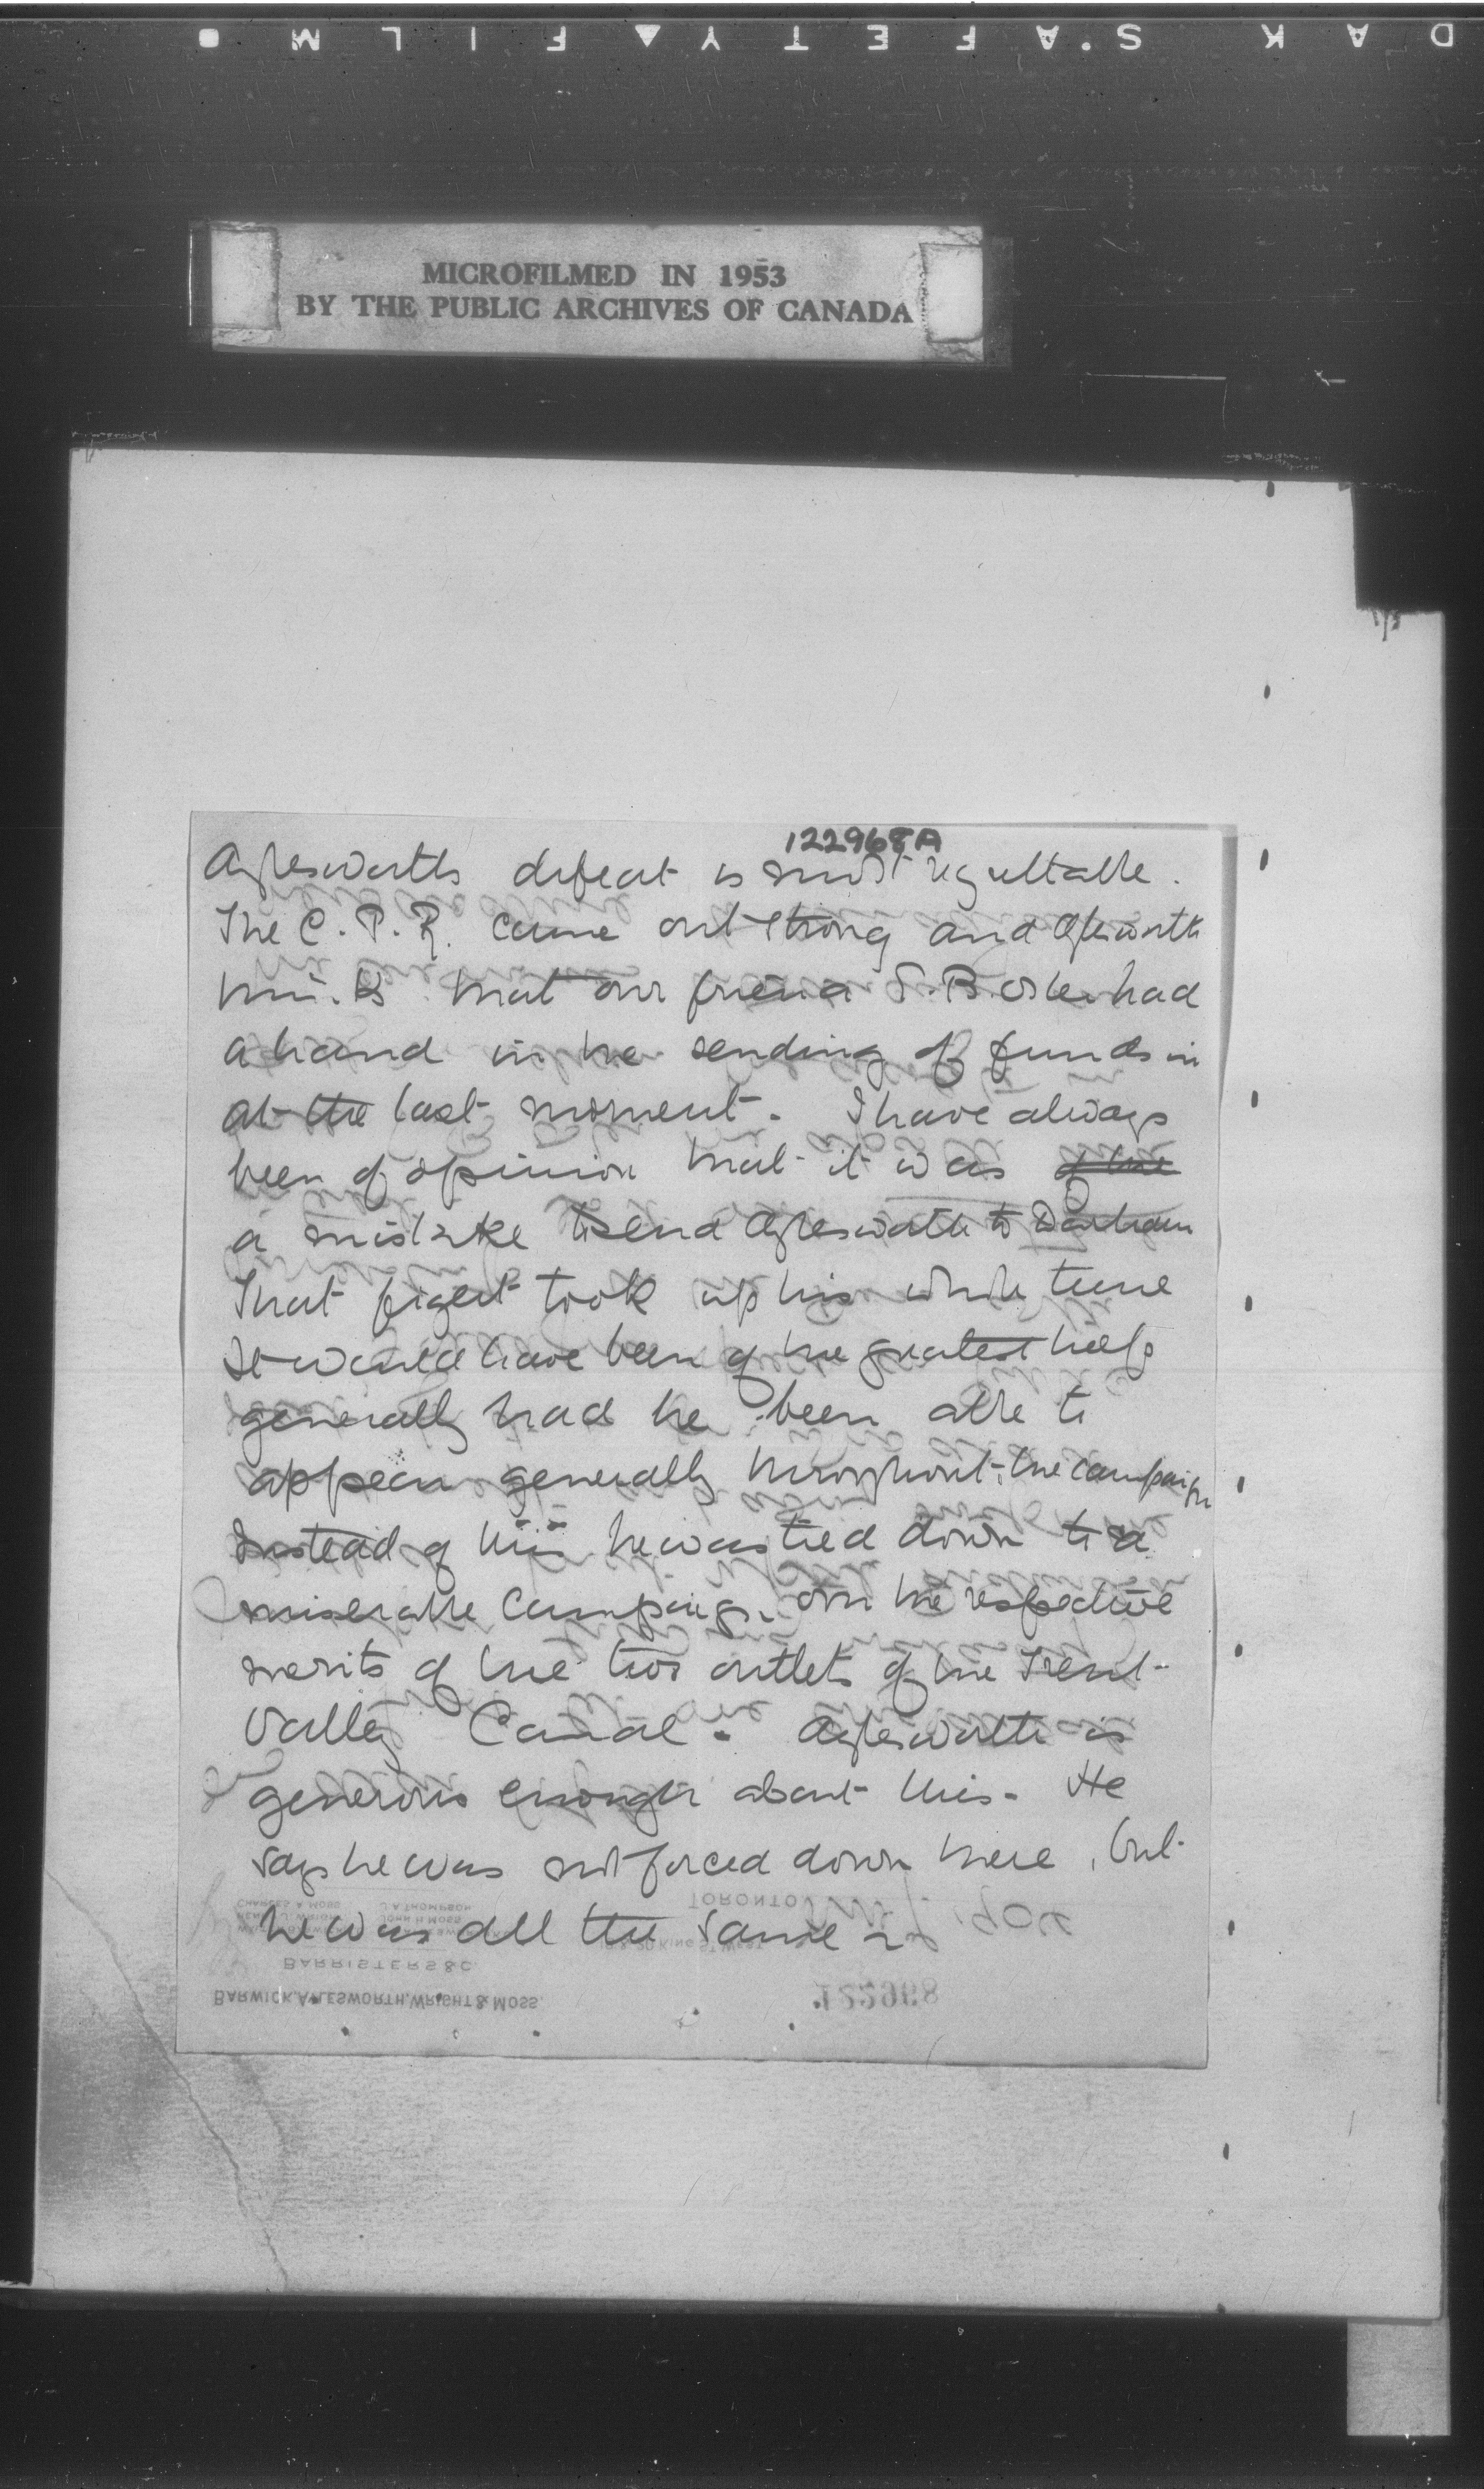 KODAK SAFETY FILM
MICROFILMED IN 1953
BY THE PUBLIC ARCHIVES OF CANADA
122968A
Aylesworth's defeat is most regrettable.
The C.P.R. came out strong and Aylesworth
thinks that our friend E.B. Osler had
a hand in the sending of funds in
at the last moment. I have always
been of opinion that it was of the
a mistake to send Aylesworth to Durham
That fight took up his whole time
It would have been of the greatest help
generally had he been able to
appear generally throughout the campaign
Instead of this he was tied down to a
miserable campaign on the respective
merits of the two outlets of the Trent
Valley Canal. Aylesworth is
generous enough about this. He
says he was not forced down there, but
he was all the same
TORONTO 1904
CHARLES A MOSS J A THOMPSON
JOHN H MOSS
BARRISTERS &C.
BARWICK, AYLESWORTH, WRIGHT & MOSS.
122968